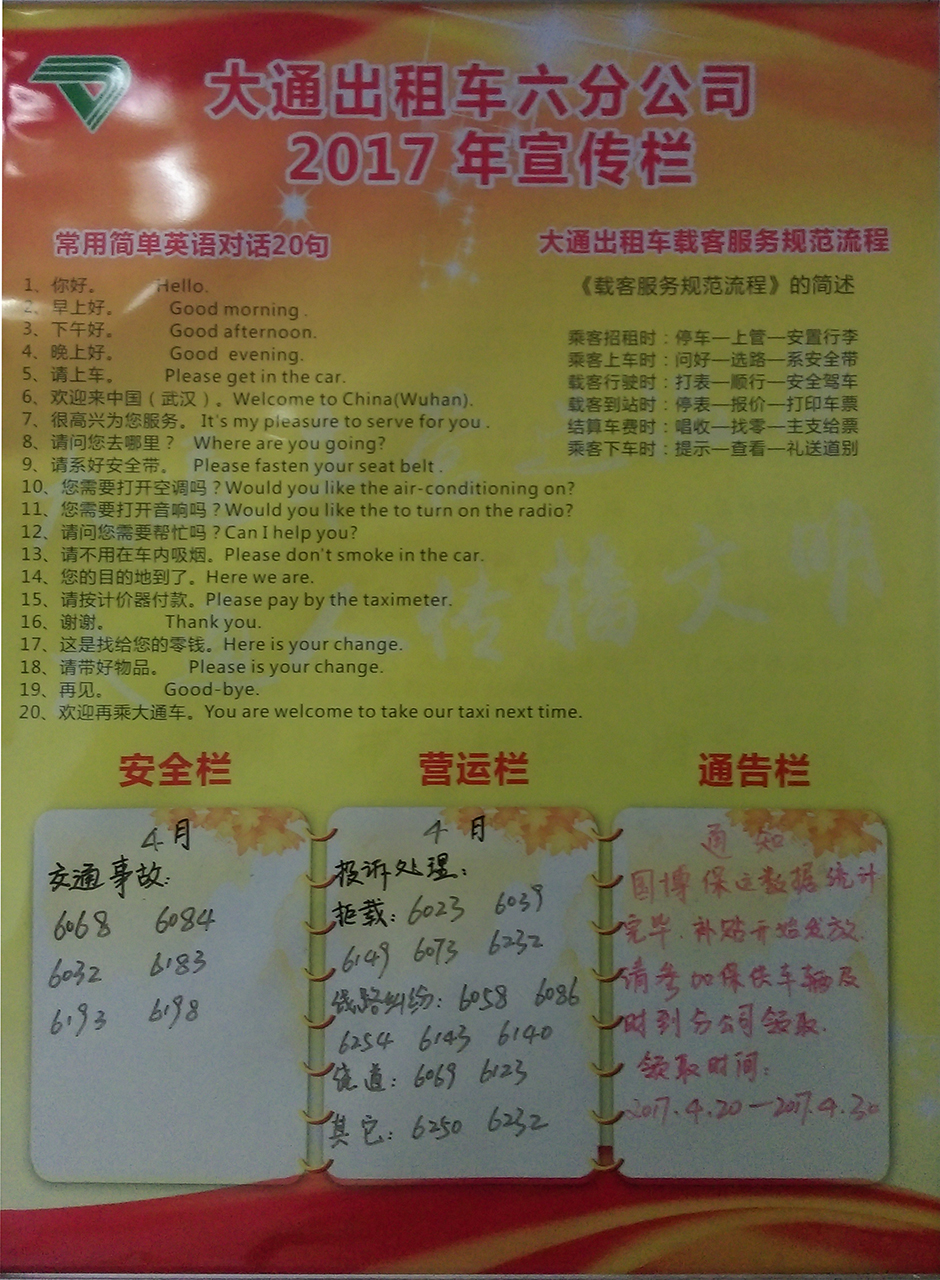 大通出租车六分公司
2017年宣传栏
常用简单英语对话20句
1、你好。 Hello.
2、早上好。 Good morning .
3、下午好。 Good afternoon.
4、晚上好。 Good evening.
5、请上车。 Please get in the car.
6、欢迎来中国（武汉）。Welcome to China(Wuhan).
7、很高兴为您服务。 It's my pleasure to serve for you .
8、请问您去哪里？ Where are you going?
9、请系好安全带。 Please fasten your seat belt .
10、您需要打开空调吗？Would you like the air-conditioning on?
11、您需要打开音响吗？Would you like the to turn on the radio?
12、请问您需要帮忙吗？Can I help you?
13、请不用在车内吸烟。Please don't smoke in the car.
14、您的目的地到了。Here we are.
15、请按计价器付款。Please pay by the taximeter.
16、谢谢。 Thank you.
17、这是找给您的零钱。Here is your change.
18、请带好物品。 Please is your change.
19、再见。 Good-bye.
20、欢迎再乘大通车。You are welcome to take our taxi next time.
大通出租车载客服务规范流程
《载客服务规范流程》的简述
乘客招租时：停车—上管—安置行李
乘客上车时：问好—选路—系安全带
载客行驶时：打表—顺行—安全驾车
载客到站时：停表—报价—打印车票
结算车费时：唱收—找零—主支给票
乘客下车时：提示—查看—礼送道别
传播文明
安全栏
4月
交通事故：
6068 6084
6032 6183
6193 6198
营运栏
4月
投诉处理：
拒载：6023 6039
6149 6073 6232
线路纠纷：6058 6086
6254 6143 6140
绕道：6069 6123
其它：6250 6232
通告栏
通知
园博保运数据统计
完毕.补贴开始发放.
请参加保供车辆及
时到分公司领取.
领取时间：
2017.4.20—2017.4.30